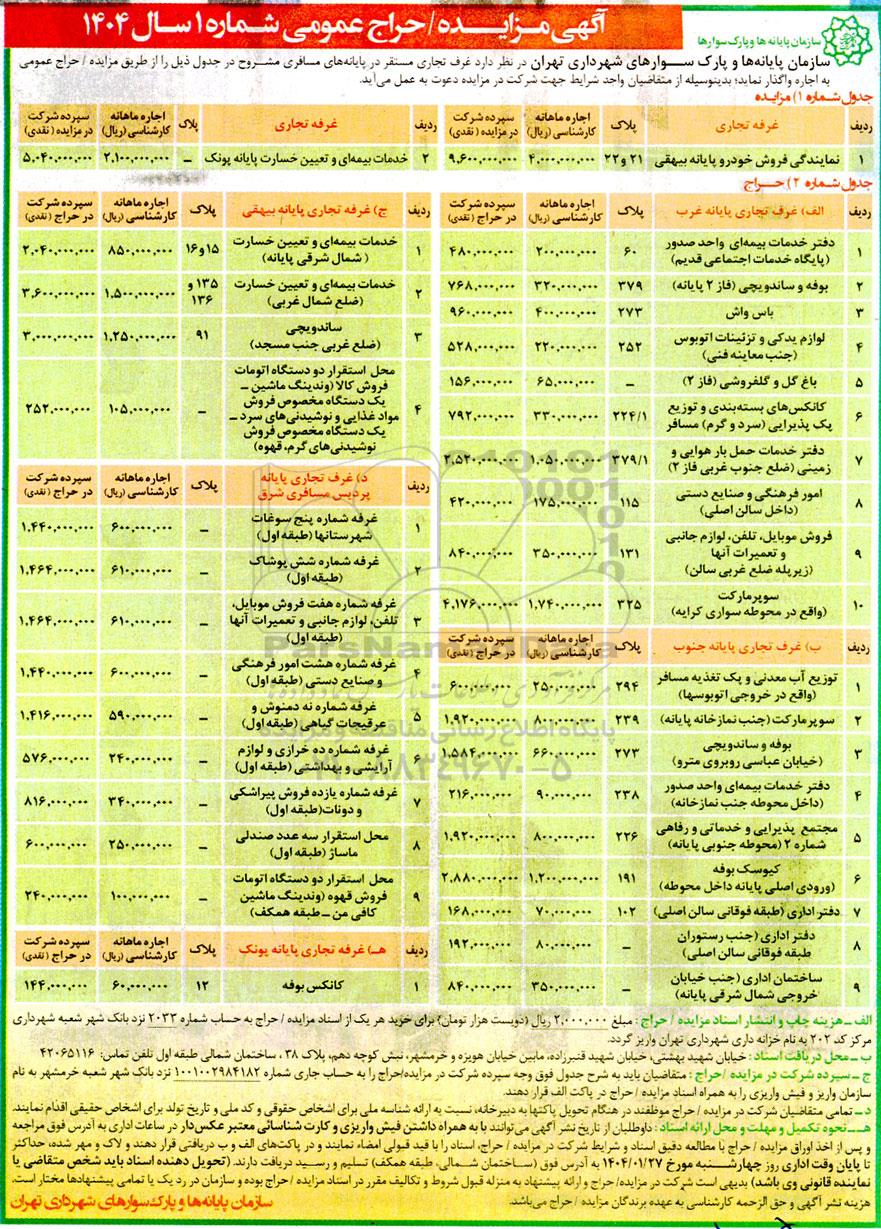 آگهی مزایده/حراج عمومی شماره ۱ سال ۱۴۰۴
سازمان پایانه ها و پارک سوارها
سازمان پایانه‌ها و پارک سوارهای شهرداری تهران در نظر دارد غرف تجاری مستقر در پایانه‌های مسافری مشروح در جدول ذیل را از طریق مزایده / حراج عمومی
به اجاره واگذار نماید؛ بدینوسیله از متقاضیان واجد شرایط جهت شرکت در مزایده دعوت به عمل می‌آید.
جدول شماره ۱) مزایده
ردیف غرفه تجاری پلاک اجاره ماهانه کارشناسی (ریال) سپرده شرکت در مزایده (نقدی)
۱ نمایندگی فروش خودرو پایانه بیهقی ۲۱ و ۲۲ ۴,۰۰۰,۰۰۰,۰۰۰ ۹,۶۰۰,۰۰۰,۰۰۰
ردیف غرفه تجاری پلاک اجاره ماهانه کارشناسی (ریال) سپرده شرکت در مزایده (نقدی)
۲ خدمات بیمه‌ای و تعیین خسارت پایانه پونک _ ۲,۱۰۰,۰۰۰,۰۰۰ ۵,۰۴۰,۰۰۰,۰۰۰
جدول شماره ۲) حراج
ردیف الف) غرف تجاری پایانه غرب پلاک اجاره ماهانه کارشناسی (ریال) سپرده شرکت در حراج (نقدی)
۱ دفتر خدمات بیمه‌ای واحد صدور (پایگاه خدمات اجتماعی قدیم) ۶۰ ۲۰۰,۰۰۰,۰۰۰ ۴۸۰,۰۰۰,۰۰۰
۲ بوفه و ساندویچی (فاز ۲ پایانه) ۳۷۹ ۳۲۰,۰۰۰,۰۰۰ ۷۶۸,۰۰۰,۰۰۰
۳ باس واش ۲۷۳ ۴۰۰,۰۰۰,۰۰۰ ۹۶۰,۰۰۰,۰۰۰
۴ لوازم یدکی و تزئینات اتوبوس (جنب معاینه فنی) ۲۵۲ ۲۲۰,۰۰۰,۰۰۰ ۵۲۸,۰۰۰,۰۰۰
۵ باغ گل و گلفروشی (فاز ۲) _ ۶۵,۰۰۰,۰۰۰ ۱۵۶,۰۰۰,۰۰۰
۶ کانکس‌های بسته‌بندی و توزیع پک پذیرایی (سرد و گرم) مسافر ۲۲۴/۱ ۳۳۰,۰۰۰,۰۰۰ ۷۹۲,۰۰۰,۰۰۰
۷ دفتر خدمات حمل بار هوایی و زمینی (ضلع جنوب غربی فاز ۲) ۳۷۹/۱ ۱,۰۵۰,۰۰۰,۰۰۰ ۲,۵۲۰,۰۰۰,۰۰۰
۸ امور فرهنگی و صنایع دستی (داخل سالن اصلی) ۱۱۵ ۱۷۵,۰۰۰,۰۰۰ ۴۲۰,۰۰۰,۰۰۰
۹ فروش موبایل، تلفن، لوازم جانبی و تعمیرات آنها (زیرپله ضلع غربی سالن) ۱۳۱ ۳۵۰,۰۰۰,۰۰۰ ۸۴۰,۰۰۰,۰۰۰
۱۰ سوپرمارکت (واقع در محوطه سواری کرایه) ۳۲۵ ۱,۷۴۰,۰۰۰,۰۰۰ ۴,۱۷۶,۰۰۰,۰۰۰
ردیف ب) غرف تجاری پایانه جنوب پلاک اجاره ماهانه کارشناسی (ریال) سپرده شرکت در حراج (نقدی)
۱ توزیع آب معدنی و پک تغذیه مسافر (واقع در خروجی اتوبوسها) ۲۹۴ ۲۵۰,۰۰۰,۰۰۰ ۶۰۰,۰۰۰,۰۰۰
۲ سوپرمارکت (جنب نمازخانه پایانه) ۲۳۹ ۸۰۰,۰۰۰,۰۰۰ ۱,۹۲۰,۰۰۰,۰۰۰
۳ بوفه و ساندویچی (خیابان عباسی روبروی مترو) ۲۷۳ ۶۶۰,۰۰۰,۰۰۰ ۱,۵۸۴,۰۰۰,۰۰۰
۴ دفتر خدمات بیمه‌ای واحد صدور (داخل محوطه جنب نمازخانه) ۲۳۸ ۹۰,۰۰۰,۰۰۰ ۲۱۶,۰۰۰,۰۰۰
۵ مجتمع پذیرایی و خدماتی و رفاهی شماره ۲ (محوطه جنوبی پایانه) ۲۲۶ ۸۰۰,۰۰۰,۰۰۰ ۱,۹۲۰,۰۰۰,۰۰۰
۶ کیوسک بوفه (ورودی اصلی پایانه داخل محوطه) ۱۹۱ ۱,۲۰۰,۰۰۰,۰۰۰ ۲,۸۸۰,۰۰۰,۰۰۰
۷ دفتر اداری (طبقه فوقانی سالن اصلی) ۱۰۲ ۷۰,۰۰۰,۰۰۰ ۱۶۸,۰۰۰,۰۰۰
۸ دفتر اداری (جنب رستوران طبقه فوقانی سالن اصلی) _ ۸۰,۰۰۰,۰۰۰ ۱۹۲,۰۰۰,۰۰۰
۹ ساختمان اداری (جنب خیابان خروجی شمال شرقی پایانه) _ ۳۵۰,۰۰۰,۰۰۰ ۸۴۰,۰۰۰,۰۰۰
ردیف ج) غرفه تجاری پایانه بیهقی پلاک اجاره ماهانه کارشناسی (ریال) سپرده شرکت در حراج (نقدی)
۱ خدمات بیمه‌ای و تعیین خسارت (شمال شرقی پایانه) ۱۵ و ۱۶ ۸۵۰,۰۰۰,۰۰۰ ۲,۰۴۰,۰۰۰,۰۰۰
۲ خدمات بیمه‌ای و تعیین خسارت (ضلع شمال غربی) ۱۳۵ و ۱۳۶ ۱,۵۰۰,۰۰۰,۰۰۰ ۳,۶۰۰,۰۰۰,۰۰۰
۳ ساندویچی (ضلع غربی جنب مسجد) ۹۱ ۱,۲۵۰,۰۰۰,۰۰۰ ۳,۰۰۰,۰۰۰,۰۰۰
۴ محل استقرار دو دستگاه اتومات فروش کالا (وندینگ ماشین _ یک دستگاه مخصوص فروش مواد غذایی و نوشیدنی‌های سرد _ یک دستگاه مخصوص فروش نوشیدنی‌های گرم، قهوه) _ ۱۰۵,۰۰۰,۰۰۰ ۲۵۲,۰۰۰,۰۰۰
ردیف د) غرف تجاری پایانه پردیس مسافری شرق پلاک اجاره ماهانه کارشناسی (ریال) سپرده شرکت در حراج (نقدی)
۱ غرفه شماره پنج سوغات شهرستانها (طبقه اول) _ ۶۰۰,۰۰۰,۰۰۰ ۱,۴۴۰,۰۰۰,۰۰۰
۲ غرفه شماره شش پوشاک (طبقه اول) _ ۶۱۰,۰۰۰,۰۰۰ ۱,۴۶۴,۰۰۰,۰۰۰
۳ غرفه شماره هفت فروش موبایل، تلفن، لوازم جانبی و تعمیرات آنها (طبقه اول) _ ۶۱۰,۰۰۰,۰۰۰ ۱,۴۶۴,۰۰۰,۰۰۰
۴ غرفه شماره هشت امور فرهنگی و صنایع دستی (طبقه اول) _ ۶۰۰,۰۰۰,۰۰۰ ۱,۴۴۰,۰۰۰,۰۰۰
۵ غرفه شماره نه دمنوش و عرقیجات گیاهی (طبقه اول) _ ۵۹۰,۰۰۰,۰۰۰ ۱,۴۱۶,۰۰۰,۰۰۰
۶ غرفه شماره ده خرازی و لوازم آرایشی و بهداشتی (طبقه اول) _ ۲۴۰,۰۰۰,۰۰۰ ۵۷۶,۰۰۰,۰۰۰
۷ غرفه شماره یازده فروش پیراشکی و دونات (طبقه اول) _ ۳۴۰,۰۰۰,۰۰۰ ۸۱۶,۰۰۰,۰۰۰
۸ محل استقرار سه عدد صندلی ماساژ (طبقه اول) _ ۲۵۰,۰۰۰,۰۰۰ ۶۰۰,۰۰۰,۰۰۰
۹ محل استقرار دو دستگاه اتومات فروش قهوه (وندینگ ماشین کافی من _ طبقه همکف) _ ۱۰۰,۰۰۰,۰۰۰ ۲۴۰,۰۰۰,۰۰۰
ردیف هـ) غرفه تجاری پایانه پونک پلاک اجاره ماهانه کارشناسی (ریال) سپرده شرکت در حراج (نقدی)
۱ کانکس بوفه ۱۲ ۶۰,۰۰۰,۰۰۰ ۱۴۴,۰۰۰,۰۰۰
الف _ هزینه چاپ و انتشار اسناد مزایده / حراج : مبلغ ۲,۰۰۰,۰۰۰ ریال (دویست هزار تومان) برای خرید هر یک از اسناد مزایده / حراج به حساب شماره ۲۰۳۳ نزد بانک شهر شعبه شهرداری
مرکز کد ۲۰۲ به نام خزانه داری شهرداری تهران واریز گردد.
ب _ محل دریافت اسناد : خیابان شهید بهشتی، خیابان شهید قنبرزاده، مابین خیابان هویزه و خرمشهر، نبش کوچه دهم، پلاک ۳۸، ساختمان شمالی طبقه اول تلفن تماس: ۴۲۰۶۵۱۱۶
ج _ سپرده شرکت در مزایده / حراج : متقاضیان باید به شرح جدول فوق وجه سپرده شرکت در مزایده/حراج را به حساب جاری شماره ۱۰۰۱۰۰۲۹۸۴۱۸۲ نزد بانک شهر شعبه خرمشهر به نام
سازمان واریز و فیش واریزی را به همراه اسناد مزایده / حراج در پاکت الف قرار دهند.
د _ تمامی متقاضیان شرکت در مزایده / حراج موظفند در هنگام تحویل پاکتها به دبیرخانه، نسبت به ارائه شناسه ملی برای اشخاص حقوقی و کد ملی و تاریخ تولد برای اشخاص حقیقی اقدام نمایند.
هـ _ نحوه تکمیل و مهلت و محل ارائه اسناد : داوطلبان از تاریخ نشر آگهی می‌توانند با به همراه داشتن فیش واریزی و کارت شناسائی معتبر عکس‌دار در ساعات اداری به آدرس فوق مراجعه
و پس از اخذ اوراق مزایده / حراج با مطالعه دقیق اسناد و شرایط شرکت در مزایده / حراج، اسناد را با قید قبولی امضاء نمایند و در پاکت‌های الف و ب دریافتی قرار دهند و لاک و مهر شده، حداکثر
تا پایان وقت اداری روز چهارشنبه مورخ ۱۴۰۴/۰۱/۲۷ به آدرس فوق (ساختمان شمالی، طبقه همکف) تسلیم و رسید دریافت دارند. (تحویل دهنده اسناد باید شخص متقاضی یا
نماینده قانونی وی باشد) بدیهی است شرکت در مزایده/ حراج و ارائه پیشنهاد به منزله قبول شروط و تکالیف مقرر در اسناد مزایده / حراج بوده و سازمان در رد یک یا تمامی پیشنهادها مختار است.
هزینه نشر آگهی و حق الزحمه کارشناسی به عهده برندگان مزایده / حراج می‌باشد.
سازمان پایانه‌ها و پارک‌سوارهای شهرداری تهران
ParsNamadData
پایگاه اطلاع رسانی مناقصه